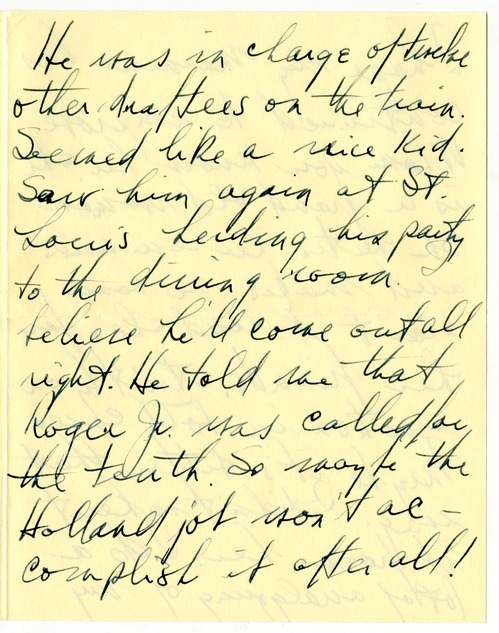 He was in charge of twelve
other draftees on the train.
Seemed like a nice kid.
Saw him again at St.
Louis herding his party
to the dining room.
believe he'll come out all
right. He told me that
Roger Jr. was called for
the tenth. So maybe the
Holland job won't ac-
complish it after all!